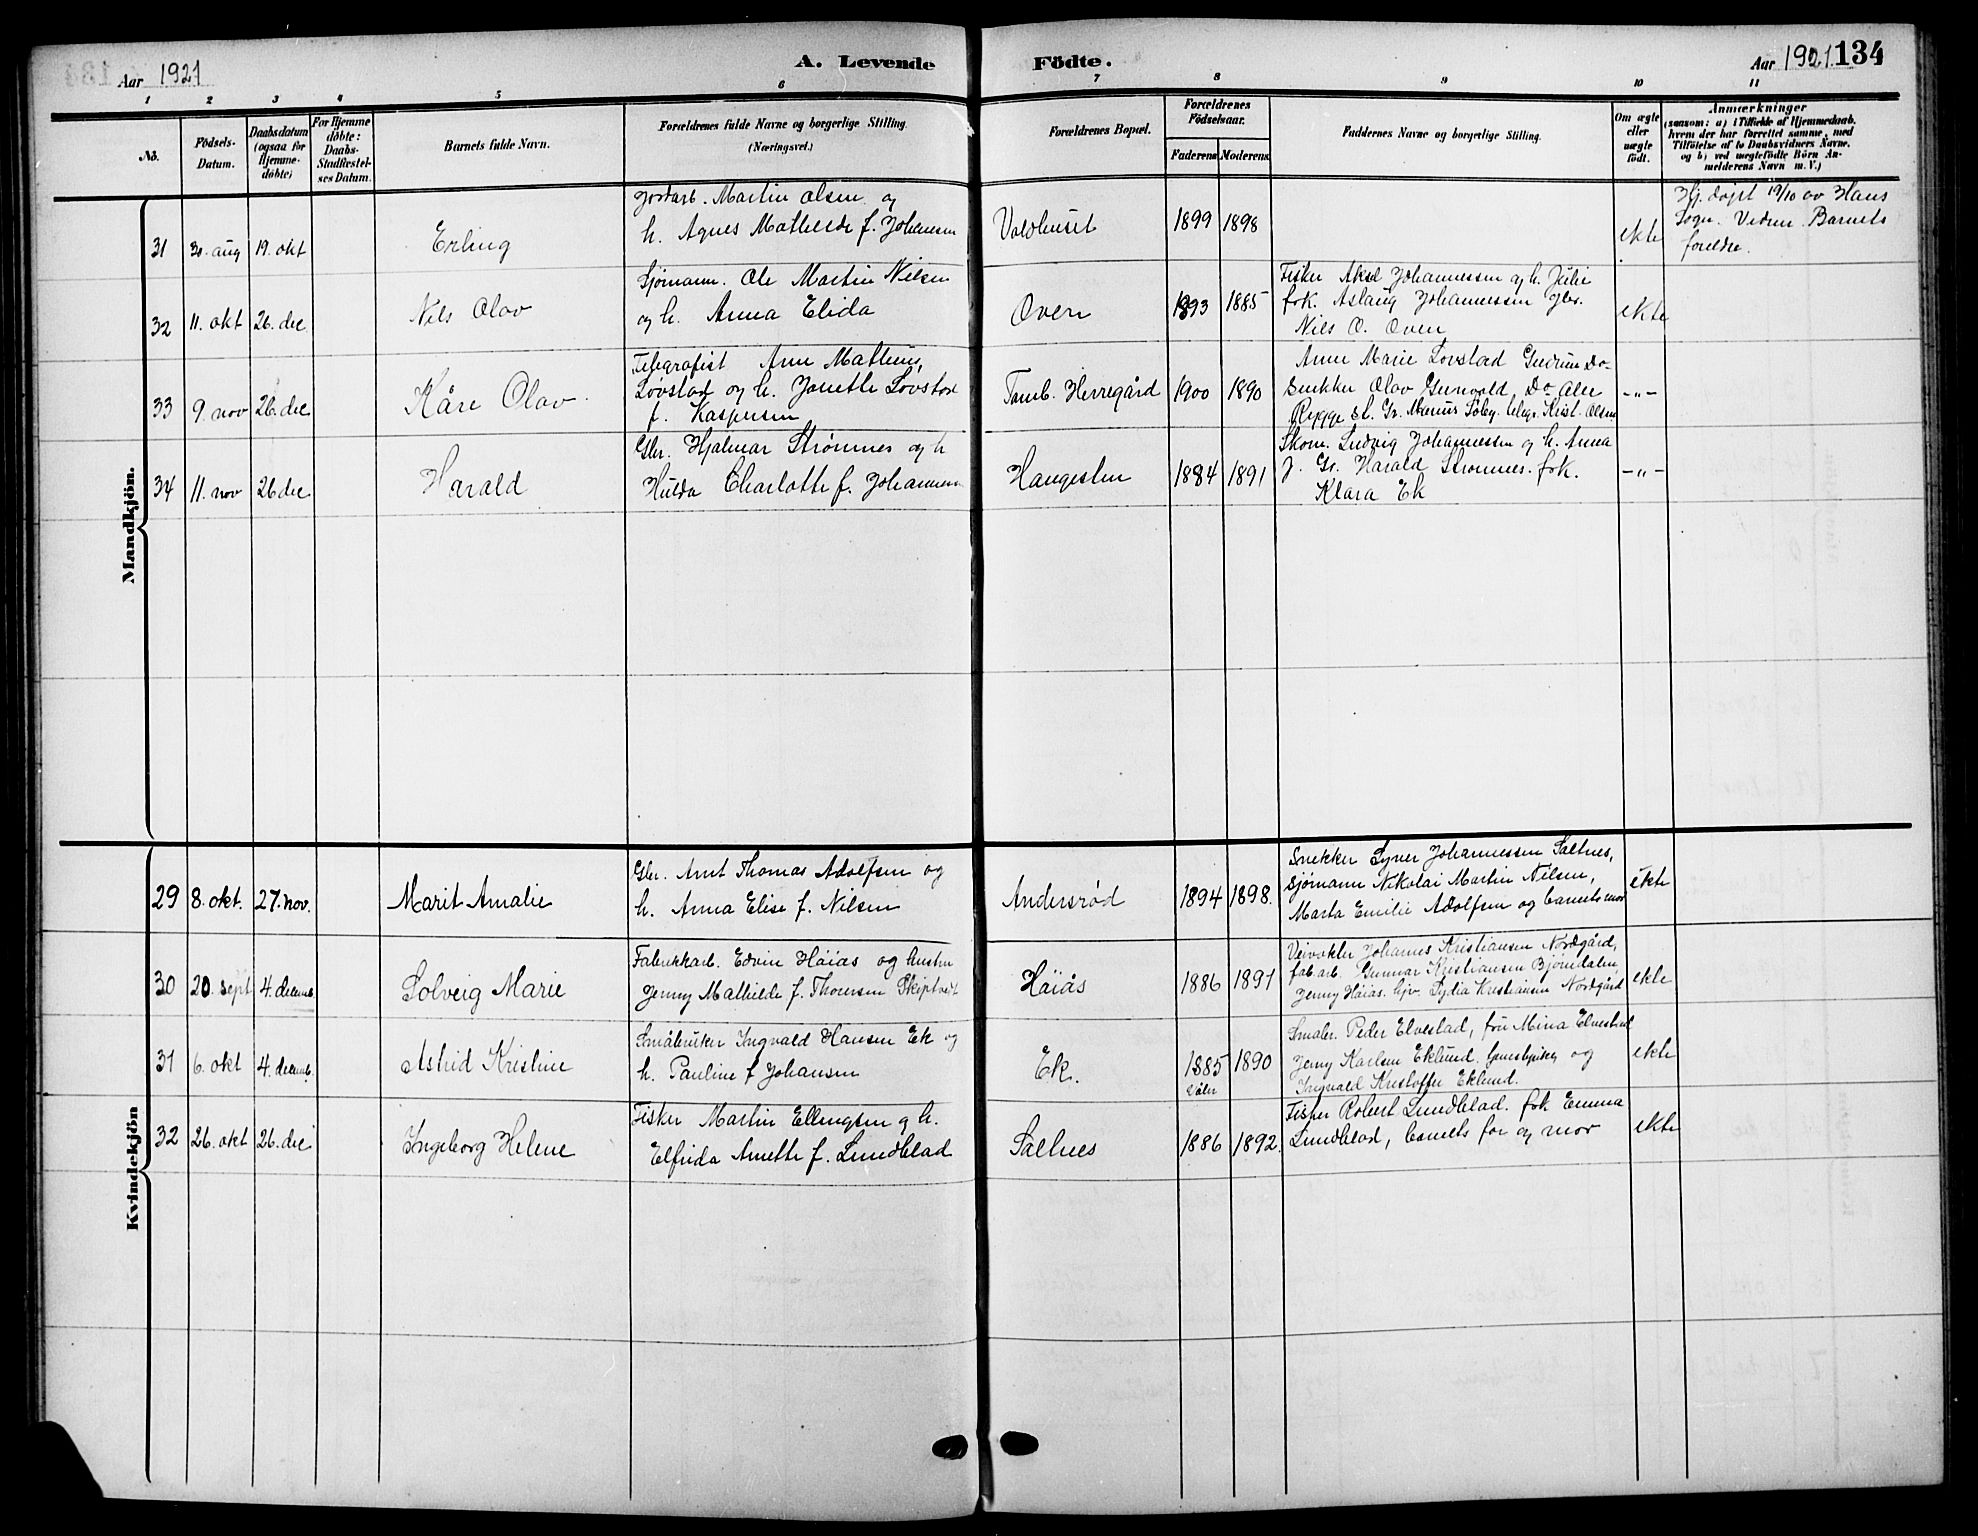 Aar 1921
A. Levende Födte.
Aar 1921. 134
1 2 3 4 5 6 7 8 9 10 11
No.
Födsels-Datum.
Daabsdatum (ogsaa for Hjemme-döbte)
For Hjemme döbte: Daabs-Stadfæstel-ses Datum.
Barnets fulde Navn.
Forældrenes fulde Navne og borgerlige Stilling. (Næringsvei.)
Forældrenes Bopæl.
Forældrenes Födselsaar.
Faderens Moderens
Faddernes Navne og borgerlige Stilling.
Om ægte eller uægte födt.
Anmærkninger
(saasom: a) i Tilfælde af Hjemmedaab, hvem der har forrettet samme, med Tilföielse af to Daabsvidners Navne, og b) ved uægtefödte Börn An-melderens Navn m. V.)
Mandkjön.
31 30. aug 19. okt Erling
Jordarb. Martin Olsen og
h. Agnes Mathilde f. Johansen
Valdhuset 1899 1898 ekte
Hj. døpt 19/10 av Hans
Sogn. Vidne. Barnets
foreldre.
32 11. okt 26. dec Nils Olav
Sjømann. Ole Martin Nilsen
og h. Anna Elida
Oven 1893 1885
Fisker Aksel Johannessen og h. Julie
frk. Aslaug Johannessen gbr.
Nils O. Oven
ekte
33 9. nov 26. dec Kåre Olav
Telegrafist Arne Mathius,
Løvstad og h. Janette Lovstad
f. Kaspersen
Tomb. Herregård 1900 1890
Anne Marie Lovstad Gudrun Do
Snekker Olav Gunvald Do
Rygge st. Gr. Marius Søby. telegr. Krist. Olsen
-"-
34 11. nov 26 dec Harald
Gbr. Hjalmar Strømnes og h
Hulda Charlotte f. Johannesen
Haugesten 1884 1891
Skom. Ludvig Johannessen og h. Anna
J. Gr. Harald Strømnes. frk.
Klara Ek
-"-
Kvindekjön
29 8. okt. 27. nov. Marit Amalie
Gbr. Arnt Thomas Adolfsen og
h. Anna Elise f. Nilsen
Andersrød 1894 1898.
Snekker Syver Johannessen Saltnes,
Sjømann Nikolai Martin Nilsen,
Marta Emilie Adolfsen og barnets mor
ekte
30 20. sept 4. decemb. Solveig Marie
Fabrikkarb. Edvin Håiås og hustru
Jenny Mathilde f. Thomsen Skiptvedt
Håiås 1886 1891
Veivokter Johannes Kristiansen Nordgård,
fab. arb. Gunnar Kristiansen Bjørndalen,
Jenny Håiås. hjv. Lydia Kristiansen Nordgård
ekte
31 6. okt 4. decemb. Astrid Kristine
Småbruker Ingvald Hansen Ek og
h. Pauline f Johansen
Ek. 1885 1890
Våler
Smaler. Peder Elvestad, fru Mina Elvestad
Jenny Karlsen Eklund. og
Ingvald Kristoffer Eklund.
ekte
32 26. okt 26. dec Ingeborg Helene
Fisker Martin Ellingsen og h.
Elfrida Anette f. Lundblad
Saltnes 1886 1892.
Fisker Robert Lundblad. frk Emma
Lundblad, barnets far og mor
ekte